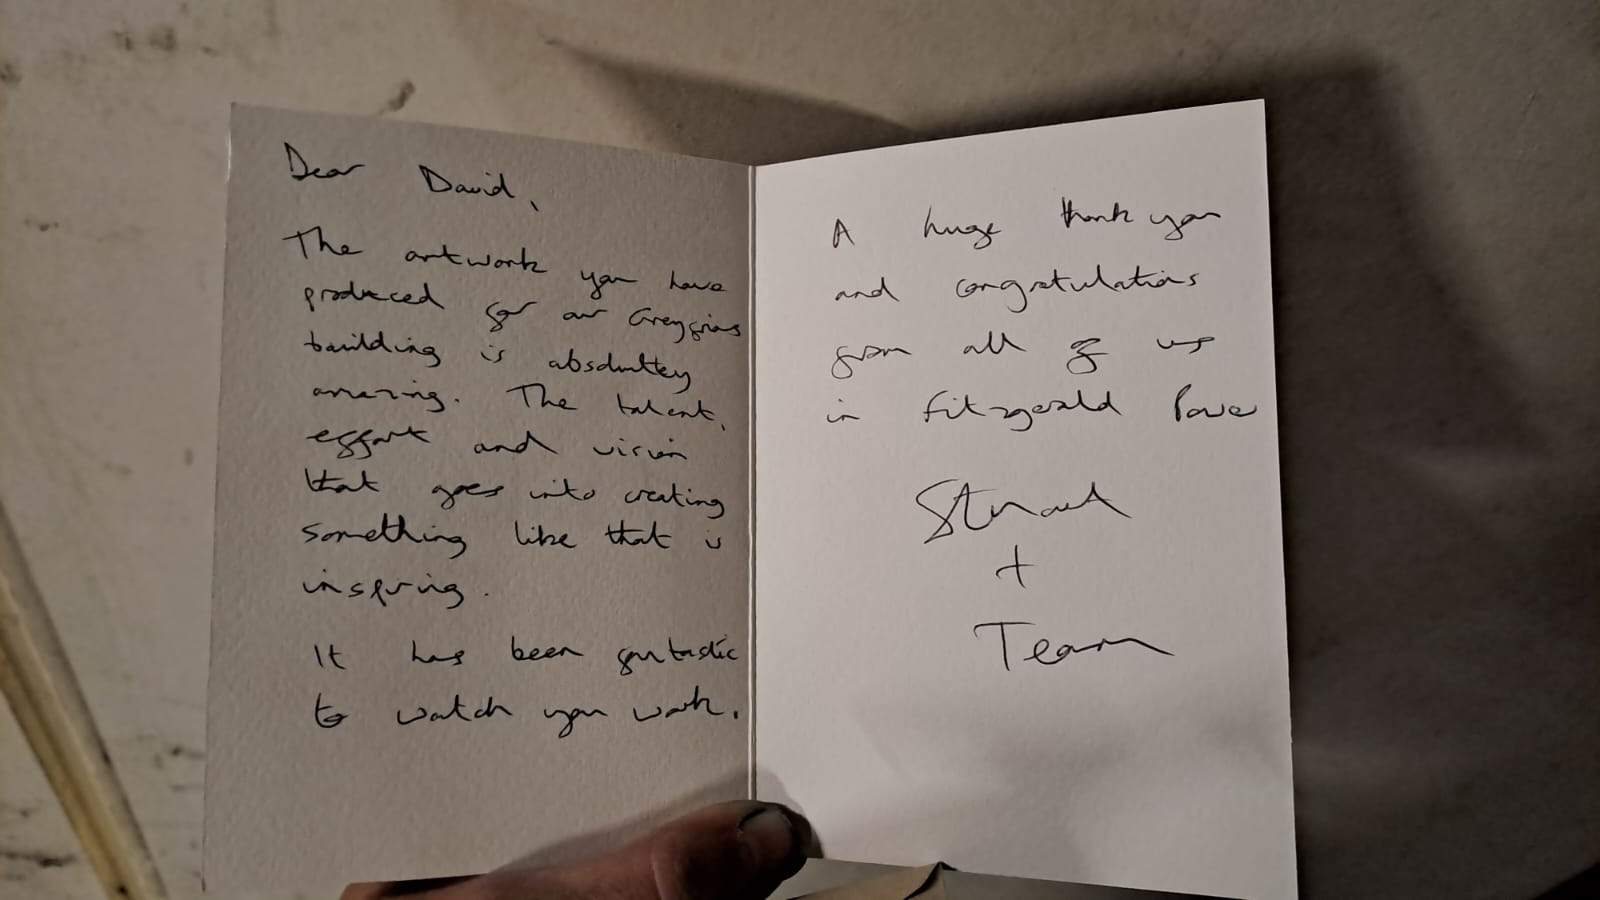 Dear David,
The artwork you have
produced for our Greyfriars
building is absolutely
amazing. The talent,
effort and vision
that goes into creating
something like that is
inspiring.
It has been fantastic
to watch you work.
A huge thank you
and congratulations
from all of us
in Fitzgerald Power
Stuart
+
Team